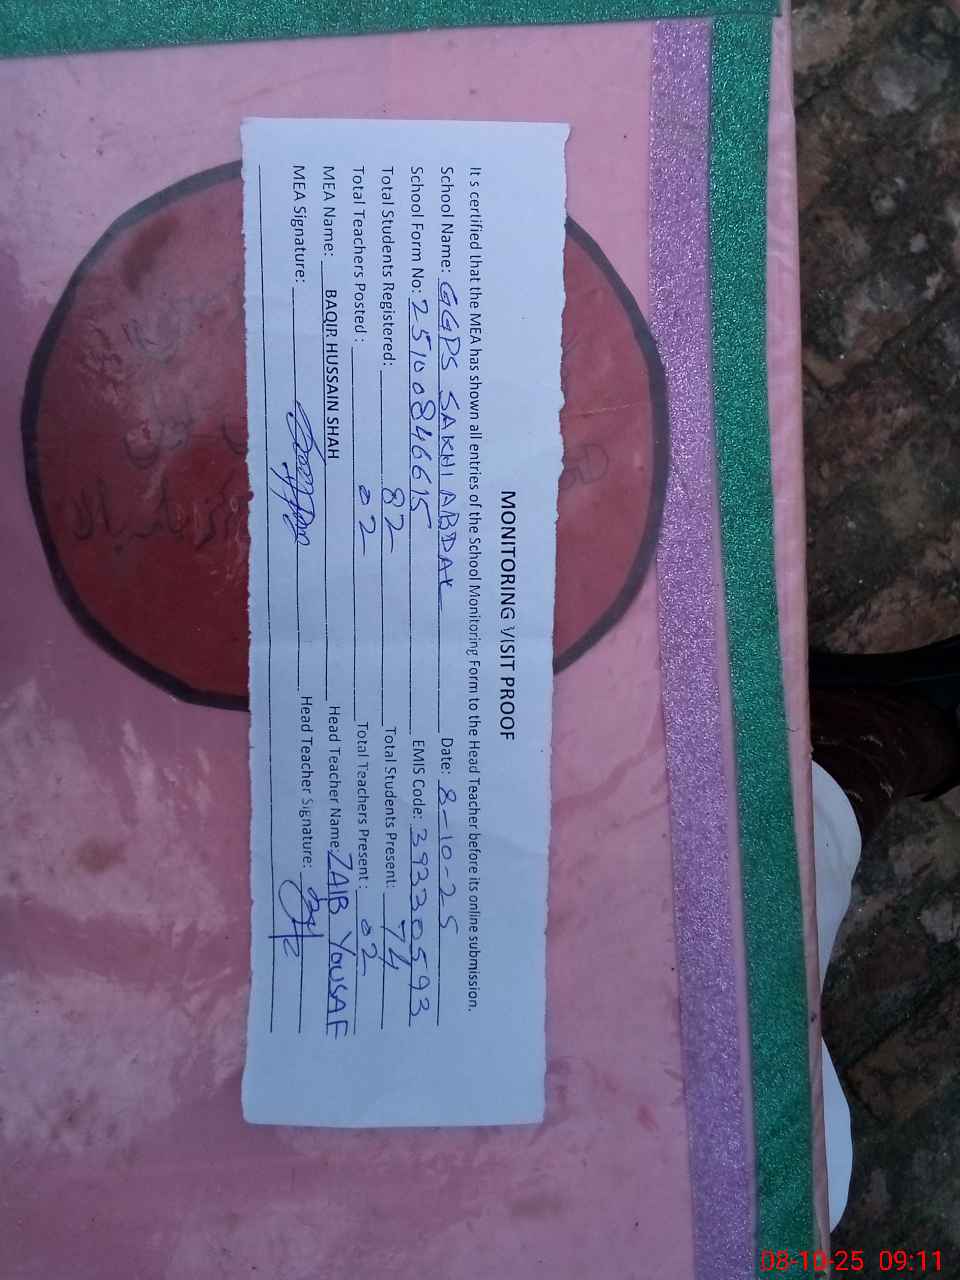 MONITORING VISIT PROOF
It s certified that the MEA has shown all entries of the School Monitoring Form to the Head Teacher before its online submission.
School Name: GGPS SAKHI ABDAL Date: 8-10-25
School Form No: 2510084 6615 EMIS Code: 39330593
Total Students Registered: 82 Total Students Present: 74
Total Teachers Posted : 02 Total Teachers Present : 02
MEA Name: BAQIR HUSSAIN SHAH Head Teacher Name: ZAIB YOUSAF
MEA Signature: Head Teacher Signature:
08-10-25 09:11